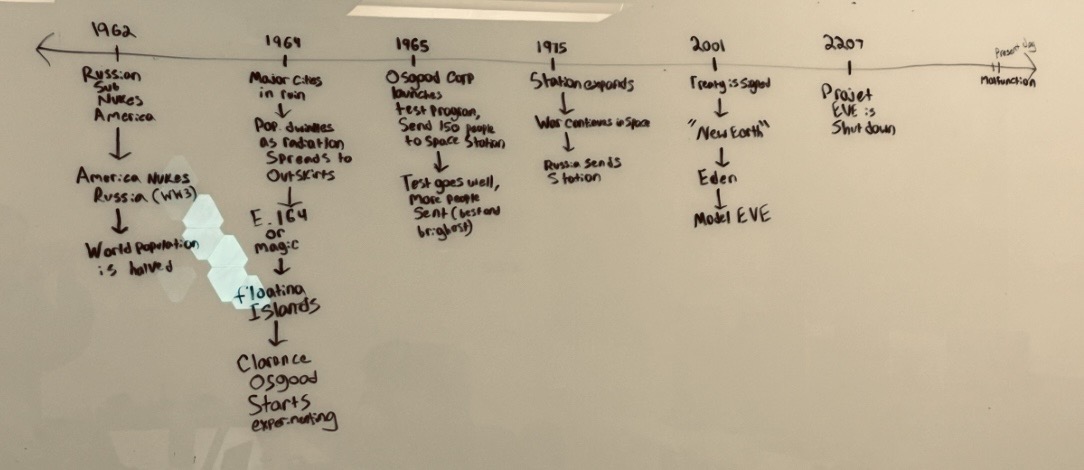 1962
Russian
Sub
Nukes
America
America Nukes
Russia (WW3)
World Population
is halved
1964
Major Cities
in ruin
Pop. dwindles
as radiation
Spreads to
Outskirts
E. 164
or
magic
floating
Islands
Clarence
Osgood
Starts
experimenting
1965
Osgood Corp
launches
test program,
Send 150 people
to Space Station
Test goes well,
More people
Sent (best and
brightest)
1975
Station expands
War continues in Space
Russia sends
Station
2001
Treaty is Signed
"New Earth"
Eden
Model EVE
2207
Projet
EVE is
Shut down
Present day
Malfunction